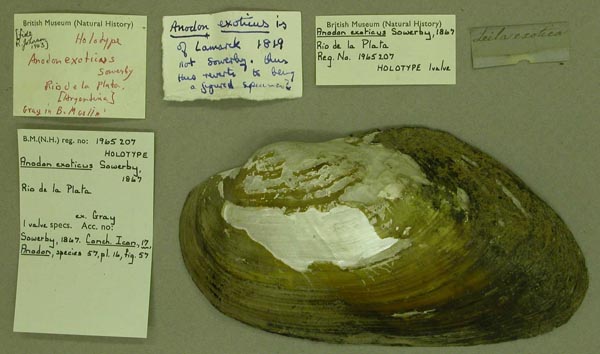 British Museum (Natural History)
Holotype
Anodon exoticus
Sowerby
Rio de la Plata.
[Argentina]
Gray in B. Mus.
Anodon exoticus is
of Lamarck 1819
not Sowerby, thus
this reverts to being
a figured specimen
British Museum (Natural History)
Anodon exoticus Sowerby, 1867
Rio de la Plata
Reg. No. 1965207
HOLOTYPE 1valve
Leila exotica
B.M.(N.H.) reg. no: 1965207
HOLOTYPE
Anodon exoticus Sowerby,
1867
Rio de la Plata
ex. Gray
1 valve specs. Acc. no:
Sowerby, 1867. Conch. Icon, 17,
Anodon, species 57, pl. 16, fig. 57